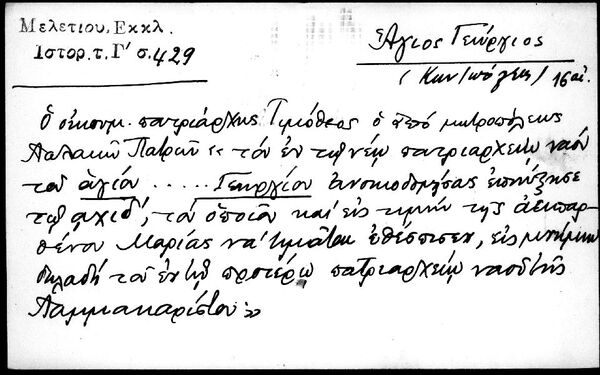 Μελετίου, Εκκλ.
Ιστορ. τ. Γ' σ. 429
Άγιος Γεώργιος
(Κων/πόλεως) 16 αι.
Ὁ οἰκουμ. πατριάρχης Τιμόθεος ὁ ἀπό μητροπόλεως
Παλαιῶν Πατρῶν « τόν ἐν τῷ νέῳ πατριαρχείῳ ναόν
τοῦ ἁγίου ..... Γεωργίου ἀνοικοδομήσας
τῷ ,αχιδ', τόν ὁποῖον καί εἰς τιμήν τῆς ἀειπαρ-
θένου Μαρίας νά τιμᾶται ἐθέσπισεν, εἰς μνήμην
δηλαδή τοῦ ἐν τῷ προτέρῳ πατριαρχείῳ ναοῦ τῆς
Παμμακαρίστου »